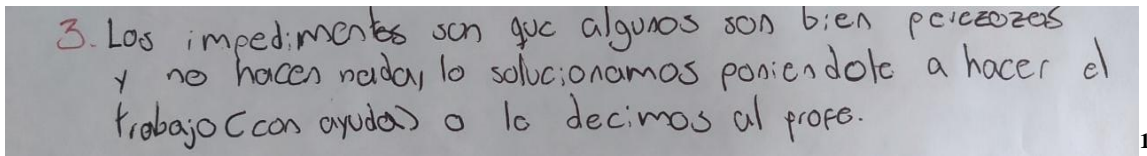 3. Los impedimentos son que algunos son bien perezozos
y no hacen nada, lo solucionamos poniendole a hacer el
trabajo (con ayuda) o le decimos al profe.
1